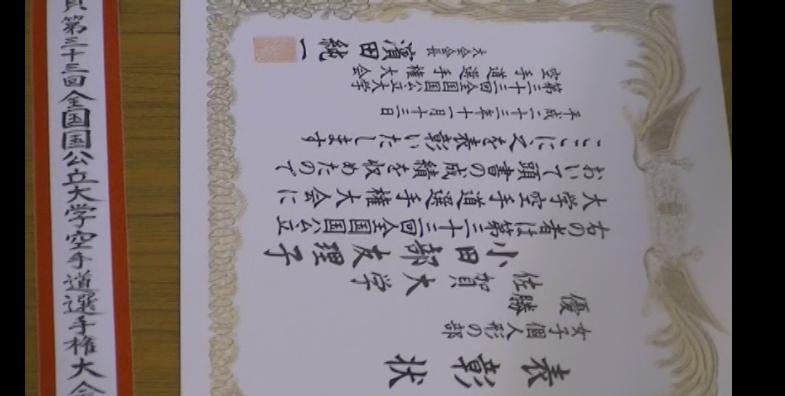 第三十三回全国国公立大学空手道選手権大会
表彰状
女子個人形の部
優勝
佐賀大学
小田部友理子
右の者は第三十三回全国国公立
大学空手道選手権大会に
おいて頭書の成績を収めたので
ここに之を表彰いたします
平成二十三年十一月十三日
第三十三回全国国公立大学
空手道選手権大会
大会会長 濱田純一